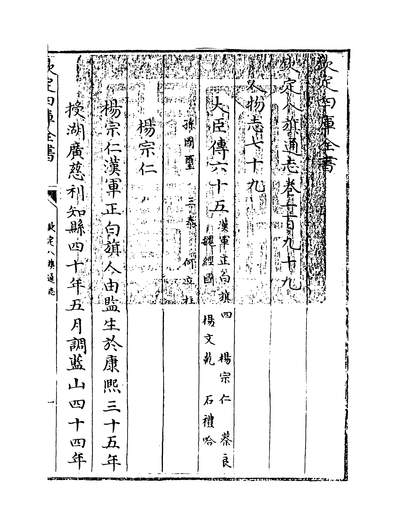 欽定四庫全書
欽定八旗通志卷一百九十九
人物志七十九
大臣傳六十五 漢軍正白旗四 楊宗仁 蔡良
經國 楊文乾 石禮哈
孫國璽 三泰 何立柱
楊宗仁
楊宗仁漢軍正白旗人由監生於康熙三十五年
授湖廣慈利知縣四十年五月調藍山四十四年
欽定四庫全書
欽定八旗通志
一